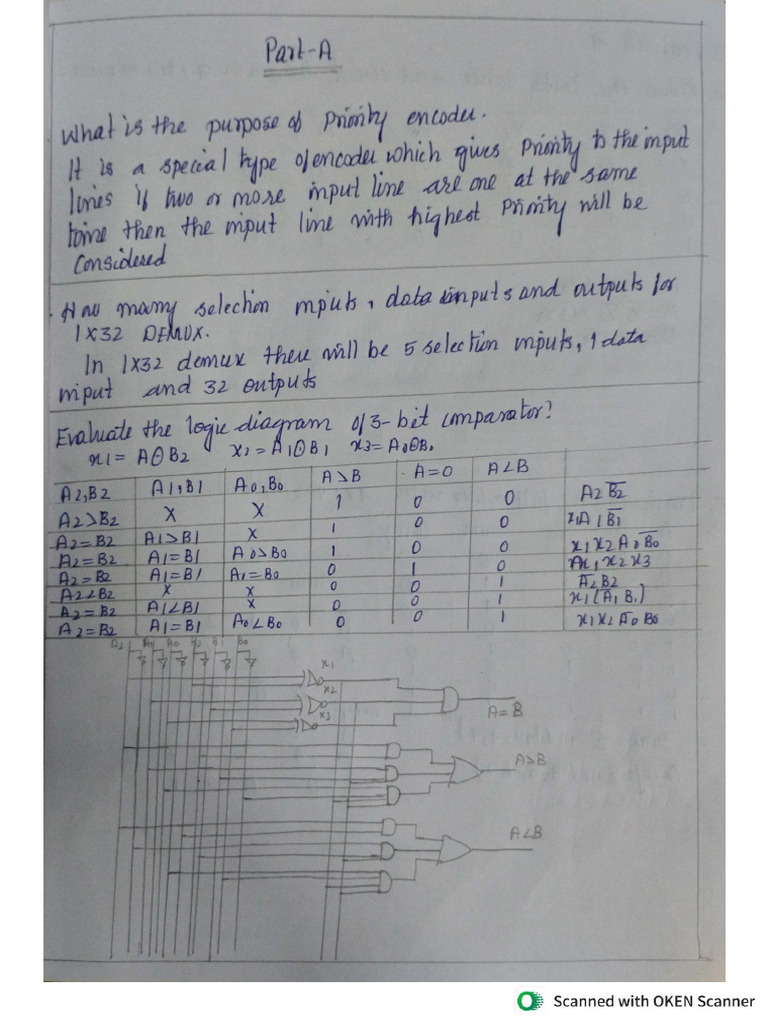 Part-A
What is the purpose of Priority encoder.
It is a special type of encoder which gives Priority to the input
lines if two or more input line are one at the same
time then the input line with highest Priority will be
Considered
How many selection inputs, data inputs and outputs for
1X32 DEMUX.
In 1X32 demux there will be 5 selection inputs, 1 data
input and 32 outputs
Evaluate the logic diagram of 3-bit comparator?
x1 = A⊙B2 x2 = A1⊙B1 x3 = A0⊙B0
A2,B2 A1,B1 A0,B0 A>B A=0 A<B
A2>B2 X X 1 0 0 A2 B̅2̅
A2=B2 A1>B1 X 1 0 0 x1A1B̅1̅
A2=B2 A1=B1 A0>B0 1 0 0 x1x2A0B̅0̅
A2=B2 A1=B1 A1=B0 0 1 0 x1x2x3
A2<B2 X X 0 0 1 A̅2B2
A2=B2 A1<B1 X 0 0 1 x1(A̅1B1)
A2=B2 A1=B1 A0<B0 0 0 1 x1x2A̅0B0
A2 A1 A0 B2 B1 B0
x1
x2
x3
A=B
A>B
A<B
Scanned with OKEN Scanner